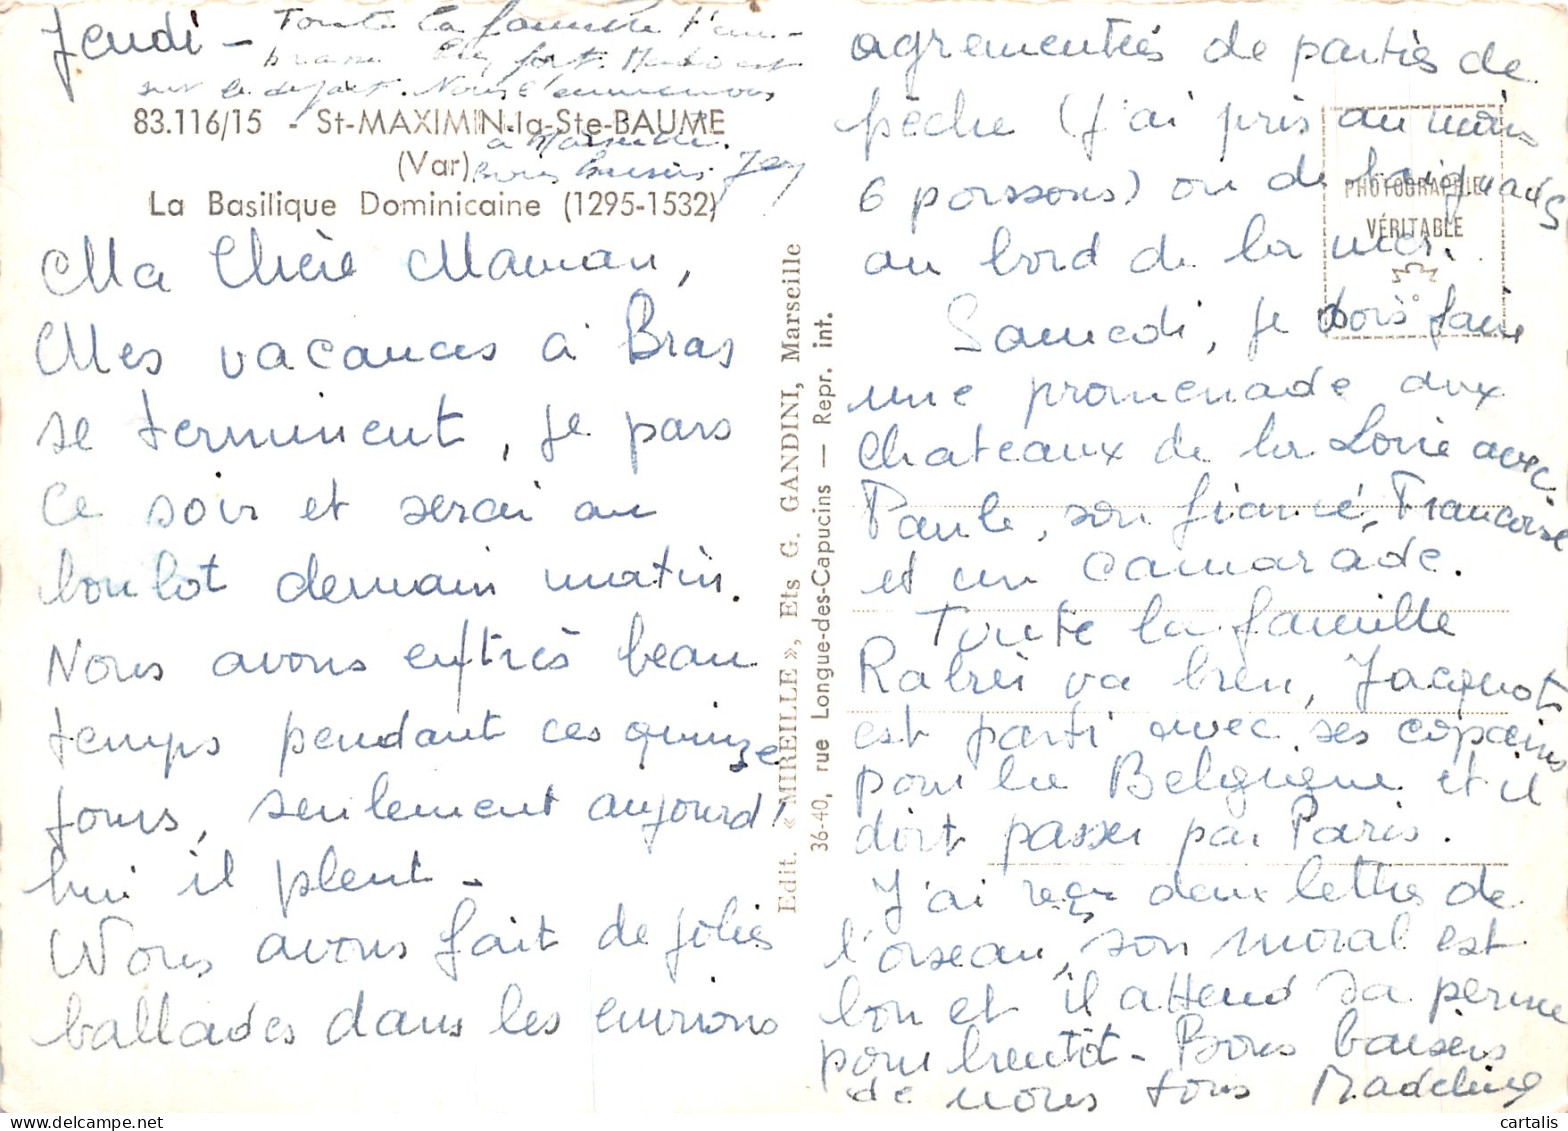 Jeudi - Toute la famille t'em-
brasse
sur le départ. Nous l'emmenons
à Marseille.
Bons baisers
83.116/15 - St-MAXIMIN-la-Ste-BAUME
(Var)
La Basilique Dominicaine (1295-1532)
Ma Chère Maman,
Mes vacances à Bras
se terminent, je pars
ce soir et serai au
boulot demain matin.
Nous avons eu très beau
temps pendant ces quinze
jours, seulement aujourd'
hui il pleut -
Nous avons fait de jolies
ballades dans les environs
Edit. « MIREILLE », Ets G. GANDINI, Marseille
36-40, rue Longue-des-Capucins — Repr. int.
PHOTOGRAPHIE
VÉRITABLE
agrementées de parties de
pêche (j'ai pris au moins
6 poissons) ou de baignades
au bord de la mer.
Samedi, je dois faire
une promenade aux
Chateaux de la Loire avec
Paule, son fiancé, Francoise
et un camarade.
Toute la famille
va bien, Jacquot
est parti avec ses copains
pour la Belgique et il
doit passer par Paris.
J'ai reçu deux lettres de
l'oiseau, son moral est
bon et il attend sa perme
pour bientôt - Bons baisers
de nous tous Madeleine